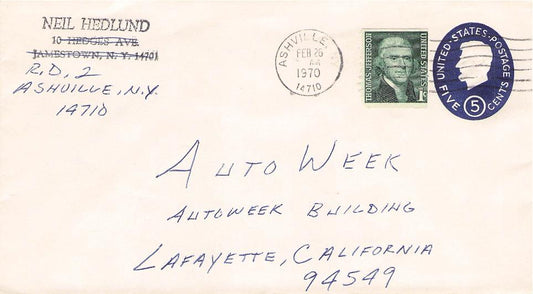 NEIL HEDLUND
10 HEDGES AVE.
JAMESTOWN, N. Y. 14701
R.D. 2
ASHVILLE, N.Y.
14710
ASHVILLE, N.
FEB 26
1970
14710
THOMAS JEFFERSON
UNITED STATES
1c
UNITED·STATES·POSTAGE
FIVE 5 CENTS
AUTO WEEK
AUTOWEEK BUILDING
LAFAYETTE, CALIFORNIA
94549